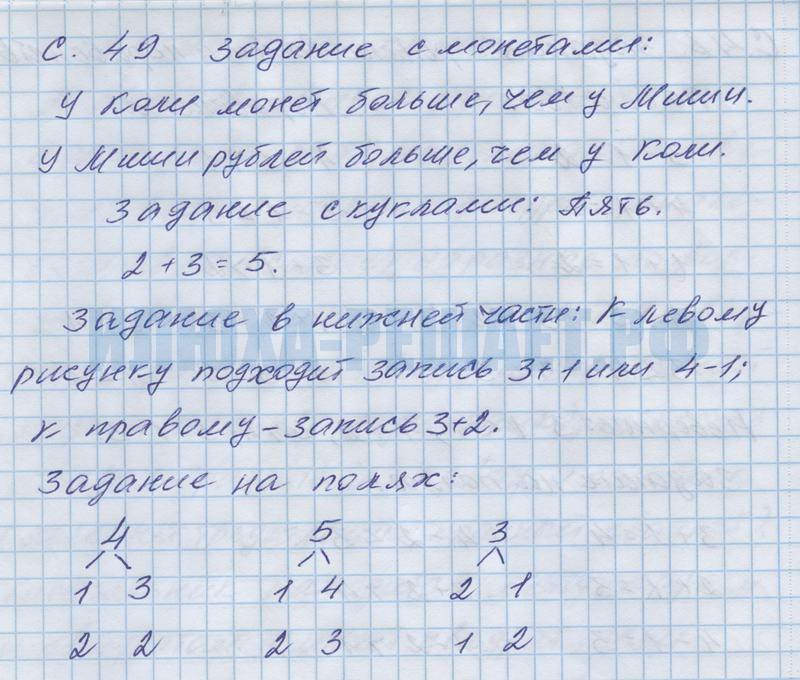 с. 49 Задание с монетами:
У Коли монет больше, чем у Миши.
У Миши рублей больше, чем у Коли.
Задание с куклами: Пять.
2 + 3 = 5.
Задание в нижней части: К левому
рисунку подходит запись 3+1 или 4-1;
к правому – запись 3+2.
Задание на полях:
4 5 3
1 3 1 4 2 1
2 2 2 3 1 2